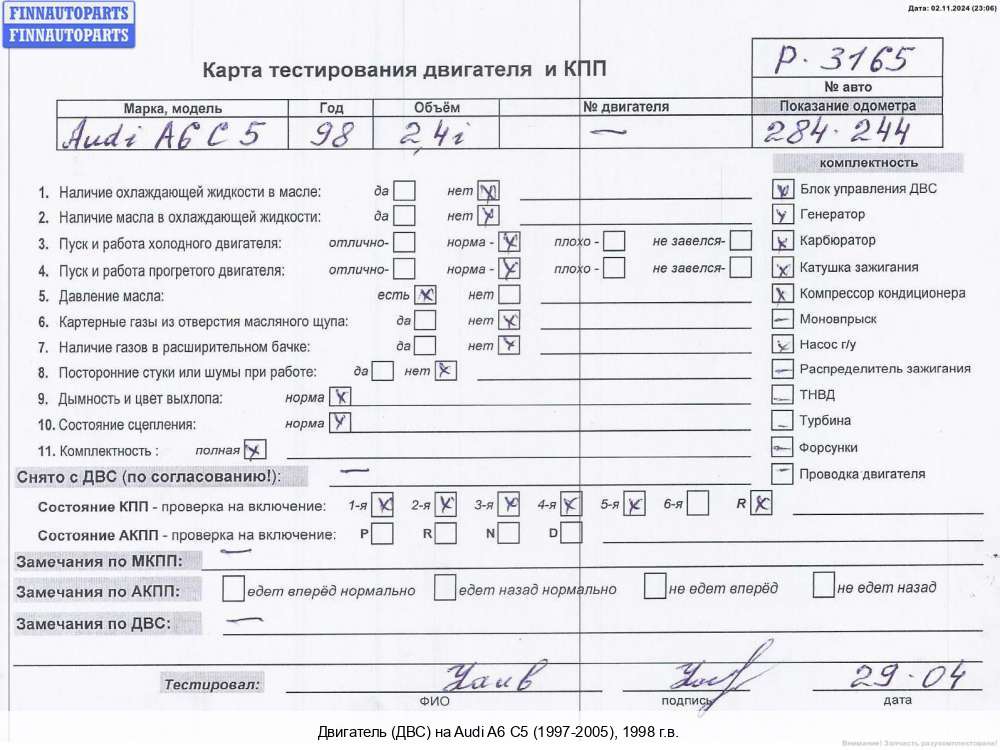 FINNAUTOPARTS
FINNAUTOPARTS
Дата: 02.11.2024 (23:06)
Карта тестирования двигателя и КПП
P. 3165
№ авто
Марка, модель Год Объём № двигателя Показание одометра
Audi A6 C5 98 2,4i — 284.244
комплектность
1. Наличие охлаждающей жидкости в масле: да нет
Блок управления ДВС
2. Наличие масла в охлаждающей жидкости: да нет
Генератор
3. Пуск и работа холодного двигателя: отлично- норма - плохо - не завелся-
Карбюратор
4. Пуск и работа прогретого двигателя: отлично- норма - плохо - не завелся-
Катушка зажигания
5. Давление масла: есть нет
Компрессор кондиционера
6. Картерные газы из отверстия масляного щупа: да нет
Моновпрыск
7. Наличие газов в расширительном бачке: да нет
Насос г/у
8. Посторонние стуки или шумы при работе: да нет
Распределитель зажигания
9. Дымность и цвет выхлопа: норма
ТНВД
10. Состояние сцепления: норма
Турбина
11. Комплектность : полная
Форсунки
Снято с ДВС (по согласованию!): —
Проводка двигателя
Состояние КПП - проверка на включение: 1-я 2-я 3-я 4-я 5-я 6-я R
Состояние АКПП - проверка на включение: P R N D
Замечания по МКПП: —
Замечания по АКПП: едет вперёд нормально едет назад нормально не едет вперёд не едет назад
Замечания по ДВС: —
Тестировал: 29.04
ФИО подпись дата
Двигатель (ДВС) на Audi A6 C5 (1997-2005), 1998 г.в.
Внимание! Запчасть разукомплектована!